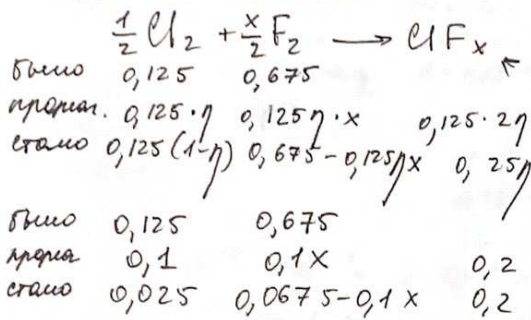 ½Cl₂ + x/2 F₂ → ClFₓ
было 0,125 0,675
прореаг. 0,125·η 0,125η·x 0,125·2η
стало 0,125(1-η) 0,675-0,125ηx 0,25η
было 0,125 0,675
прореа 0,1 0,1x 0,2
стало 0,025 0,0675-0,1x 0,2